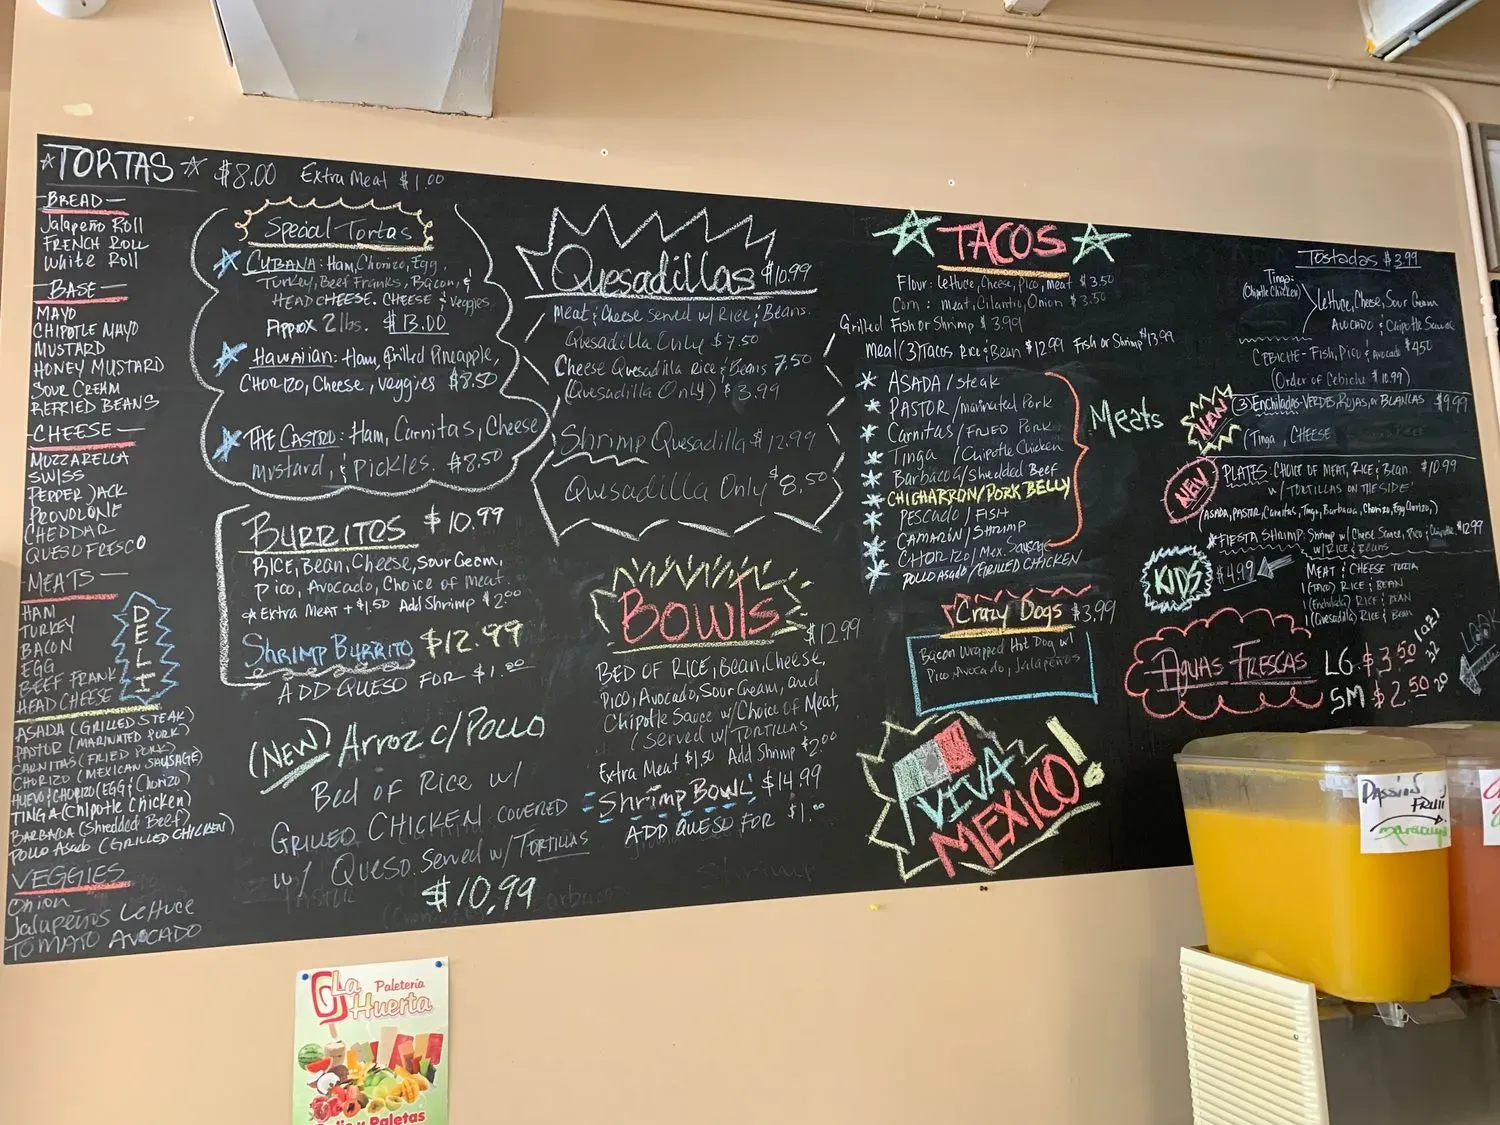 TORTAS $8.00 Extra Meat $1.00
BREAD
Jalapeño Roll
FRENCH ROLL
White Roll
BASE
MAYO
CHIPOTLE MAYO
MUSTARD
HONEY MUSTARD
SOUR CREAM
REFRIED BEANS
CHEESE
MOZZARELLA
SWISS
PEPPER JACK
PROVOLONE
CHEDDAR
QUESO FRESCO
MEATS
HAM
TURKEY
BACON
EGG
BEEF FRANK
HEAD CHEESE
DELI
ASADA (GRILLED STEAK)
PASTOR (MARINATED PORK)
CARNITAS (FRIED PORK)
CHORIZO (MEXICAN SAUSAGE)
HUEVO & CHORIZO (EGG & CHORIZO)
TINGA (Chipotle Chicken)
BARBACOA (Shredded Beef)
POLLO ASADO (GRILLED CHICKEN)
VEGGIES
ONION
Jalapeños Lettuce
TOMATO AVOCADO
Special Tortas
CUBANA: Ham, Chorizo, Egg,
Turkey, Beef Franks, Bacon, &
HEAD CHEESE. CHEESE & Veggies.
Approx 2 lbs. $13.00
HAWAIIAN: Ham, Grilled Pineapple,
CHORIZO, Cheese, veggies $8.50
THE CASTRO: Ham, Carnitas, Cheese
Mustard, & Pickles. $8.50
BURRITOS $10.99
RICE, Bean, Cheese, Sour Cream,
Pico, Avocado, Choice of Meat.
*Extra Meat + $1.50 Add Shrimp $2.00
Shrimp Burrito $12.99
ADD QUESO FOR $1.00
(NEW) Arroz c/Pollo
Bed of Rice w/
GRILLED CHICKEN COVERED
w/ Queso. Served w/ TORTILLAS
$10.99
Quesadillas $10.99
Meat & Cheese Served w/ Rice & Beans.
Quesadilla Only $7.50
Cheese Quesadilla Rice & Beans 7.50
(Quesadilla Only) $3.99
Shrimp Quesadilla $12.99
Quesadilla Only $8.50
BOWLS $12.99
BED OF RICE, Bean, Cheese,
Pico, Avocado, Sour Cream, and
Chipotle Sauce w/ Choice of Meat,
(Served w/ TORTILLAS
Extra Meat $1.50 Add Shrimp $2.00
Shrimp BOWL $14.99
ADD QUESO FOR $1.00
TACOS
Flour: Lettuce, Cheese, Pico, Meat $3.50
Corn: Meat, Cilantro, Onion $3.50
Grilled Fish or Shrimp $3.99
Meal (3) Tacos Rice & Bean $12.99 Fish or Shrimp $13.99
ASADA/Steak
PASTOR/Marinated Pork
Carnitas/FRIED PORK
Tinga/Chipotle Chicken
Barbacoa/Shredded Beef
CHICHARRON/PORK BELLY
PESCADO/FISH
CAMARON/SHRIMP
CHORIZO/Mex. Sausage
POLLO ASADO/GRILLED CHICKEN
Meats
Crazy Dogs $3.99
Bacon Wrapped Hot Dog w/
Pico, Avocado, Jalapeños
VIVA
MEXICO!
Tostadas $3.99
Tinga:
(Chipotle Chicken)
Lettuce, Cheese, Sour Cream
Avocado & Chipotle Sauce
CEBICHE- Fish, Pico & Avocado $4.50
(Order of Cebiche $10.99)
NEW
(3) Enchiladas-VERDES, ROJAS, or BLANCAS $9.99
(Tinga, CHEESE
NEW
PLATES: CHOICE OF MEAT, RICE & Bean. $10.99
w/ TORTILLAS ON THE SIDE
(ASADA, PASTOR, Carnitas, Tinga, Barbacoa, Chorizo, Egg Chorizo,)
*FIESTA SHRIMP: Shrimp w/ Cheese Sauce, Pico, Chipotle $12.99
w/ Rice & Beans
KIDS $4.99
MEAT & CHEESE TORTA
1 (Taco) RICE & BEAN
1 (Enchilada) RICE & BEAN
1 (Quesadilla) RICE & Bean
AGUAS FRESCAS LG. $3.50 32 (oz)
SM $2.50 20
LOOK
PASSION
FRUIT
maracuya
La
Paletería
Huerta
y Paletas